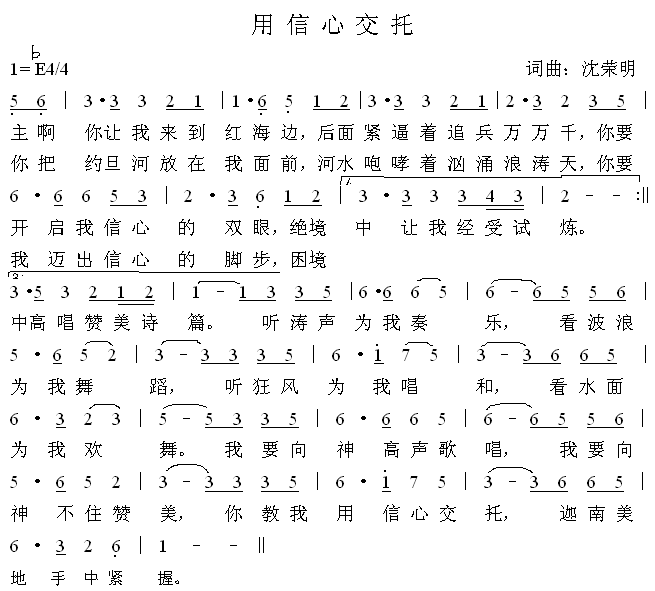 用信心交托
1=♭E4/4 词曲：沈荣明
5 6 | 3·3 3 2 1 | 1·6 5 1 2 | 3·3 3 2 1 | 2·3 2 3 5 |
主啊 你让我来到 红海边，后面紧逼着追兵万万千，你要
你把 约旦河放在 我面前，河水咆哮着汹涌浪涛天，你要
6·6 6 5 3 | 2·3 6 1 2 | 1. 3·3 3 3 4 3 | 2 - - :||
开启我信心 的 双眼，绝境 中 让我经受试 炼。
我 迈出信心 的 脚步，困境
2. 3·5 3 2 1 2 | 1 - 1 3 3 5 | 6·6 6 5 | 6 - 6 5 5 6 |
中高唱赞美诗 篇。 听涛声 为我奏 乐， 看波浪
5·6 5 2 | 3 - 3 3 3 5 | 6·i 7 5 | 3 - 3 6 6 5 |
为我舞 蹈， 听狂风 为我唱 和， 看水面
6·3 2 3 | 5 - 5 3 3 5 | 6·6 6 5 | 6 - 6 5 5 6 |
为我欢 舞。 我要向 神高声歌 唱， 我要向
5·6 5 2 | 3 - 3 3 3 5 | 6·i 7 5 | 3 - 3 6 6 5 |
神不住赞 美， 你教我 用信心交 托， 迦南美
6·3 2 6 | 1 - - ||
地手中紧 握。